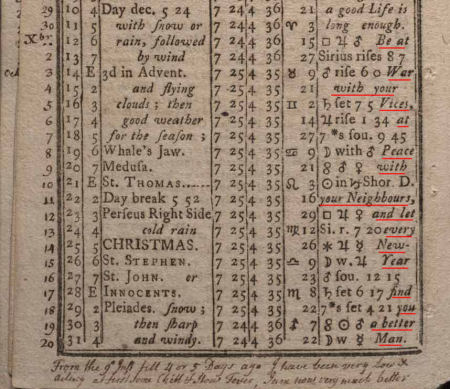 29 10 4 Day dec. 5 24 7 24 4 36 21 a good Life is
30 11 5 with snow or 7 24 4 36 ♈ 3 long enough.
Xbr 12 6 rain, followed 7 24 4 36 15 □ ♃ ♂ Be at
2 13 7 by wind 7 24 4 36 27 Sirius rises 8 7
3 14 E 3d in Advent. 7 25 4 35 ♉ 9 ♂ rise 6 0 War
4 15 2 and flying 7 25 4 35 21 with your
5 16 3 clouds; then 7 25 4 35 ♊ 2 ♄ set 7 5 Vices,
6 17 4 good weather 7 25 4 35 14 ♃ rise 1 34 at
7 18 5 for the season; 7 25 4 35 27 7*s sou. 9 45
8 19 6 Whale's Jaw. 7 25 4 35 ♋ 9 ☽ with ♂ Peace
9 20 7 Medusa. 7 25 4 35 21 ☍ ♂ ♀ with
10 21 E St. THOMAS...... 7 25 4 35 ♌ 3 ☉ in ♑ Shor. D.
11 22 2 Day break 5 52 7 25 4 35 16 your Neighbours,
12 23 3 Perseus Right Side 7 25 4 35 29 □ ♃ ♀ and let
13 24 4 cold rain 7 25 4 35 ♍ 12 Si. r. 7 20 every
14 25 5 CHRISTMAS. 7 25 4 35 26 ⚹ ♃ ☿ New-
15 26 6 St. STEPHEN. 7 25 4 35 ♎ 9 ☽ w. ♃ Year
16 27 7 St. JOHN. or 7 25 4 35 23 ♂ sou. 12 15
17 28 E INNOCENTS. 7 25 4 35 ♏ 8 ♄ set 6 17 find
18 29 2 Pleiades. snow; 7 25 4 35 22 7*s set 4 21 you
19 30 3 then sharp 7 24 4 36 ♐ 7 ☍ ☉ ♂ a better
20 31 4 and windy. 7 24 4 36 22 ☽ w. ☿ Man.
From the 9th Inst till 4 or 5 Days ago I have been very low &
ailing at first some Chill & Slow Fever. Am now very much better